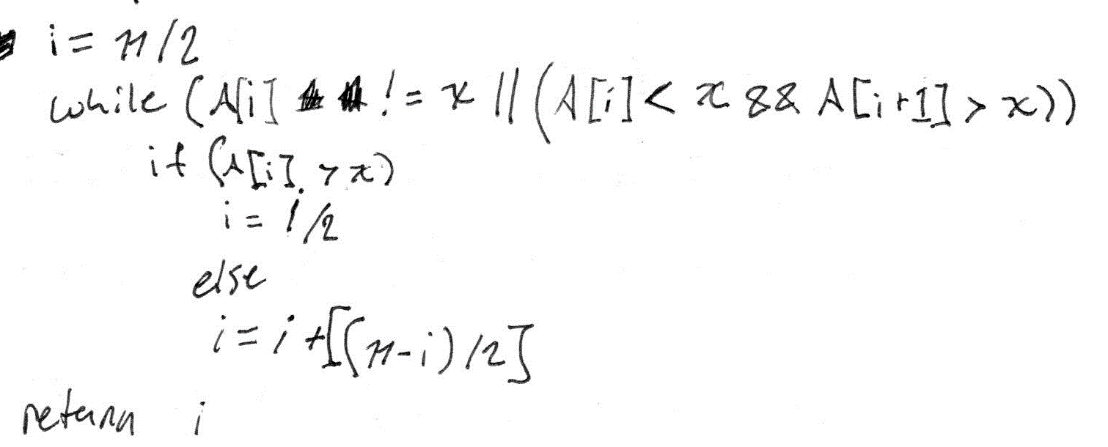 i = n/2
while (A[i] != x || (A[i] < x && A[i+1] > x))
if (A[i] > x)
i = i/2
else
i = i + [(n-i)/2]
return i